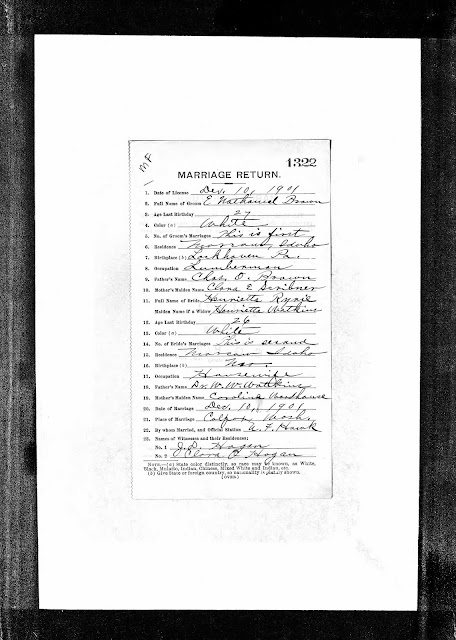 MF
1322
MARRIAGE RETURN.
1. Date of License Dec. 10, 1901
2. Full Name of Groom E. Nathaniel Brown
3. Age Last Birthday 27
4. Color (a) White
5. No. of Groom's Marriages This is first
6. Residence Moscow, Idaho
7. Birthplace (b) Lockhaven Pa.
8. Occupation Lumberman
9. Father's Name Chas. O. Brown
10. Mother's Maiden Name Clara E Scribner
11. Full Name of Bride Henrietta
Maiden Name if a Widow Henrietta Watkins
12. Age Last Birthday 26
13. Color (a) White
14. No. of Bride's Marriages This is second
15. Residence Moscow Idaho
16. Birthplace (b)
17. Occupation Housewife
18. Father's Name Dr. W. W. Watkins
19. Mother's Maiden Name Caroline Woodhouse
20. Date of Marriage Dec. 10, 1901
21. Place of Marriage Colfax Wash.
22. By whom Married, and Official Station Hawk
23. Names of Witnesses and their Residences:
No. 1 J. D. Hagan
No. 2 Clara Hogan
NOTE.—(a) State color distinctly, so race may be known, as White,
Black, Mulatto, Indian, Chinese, Mixed White and Indian, etc.
(b) Give State or foreign country, so nationality is plainly shown.
(OVER)